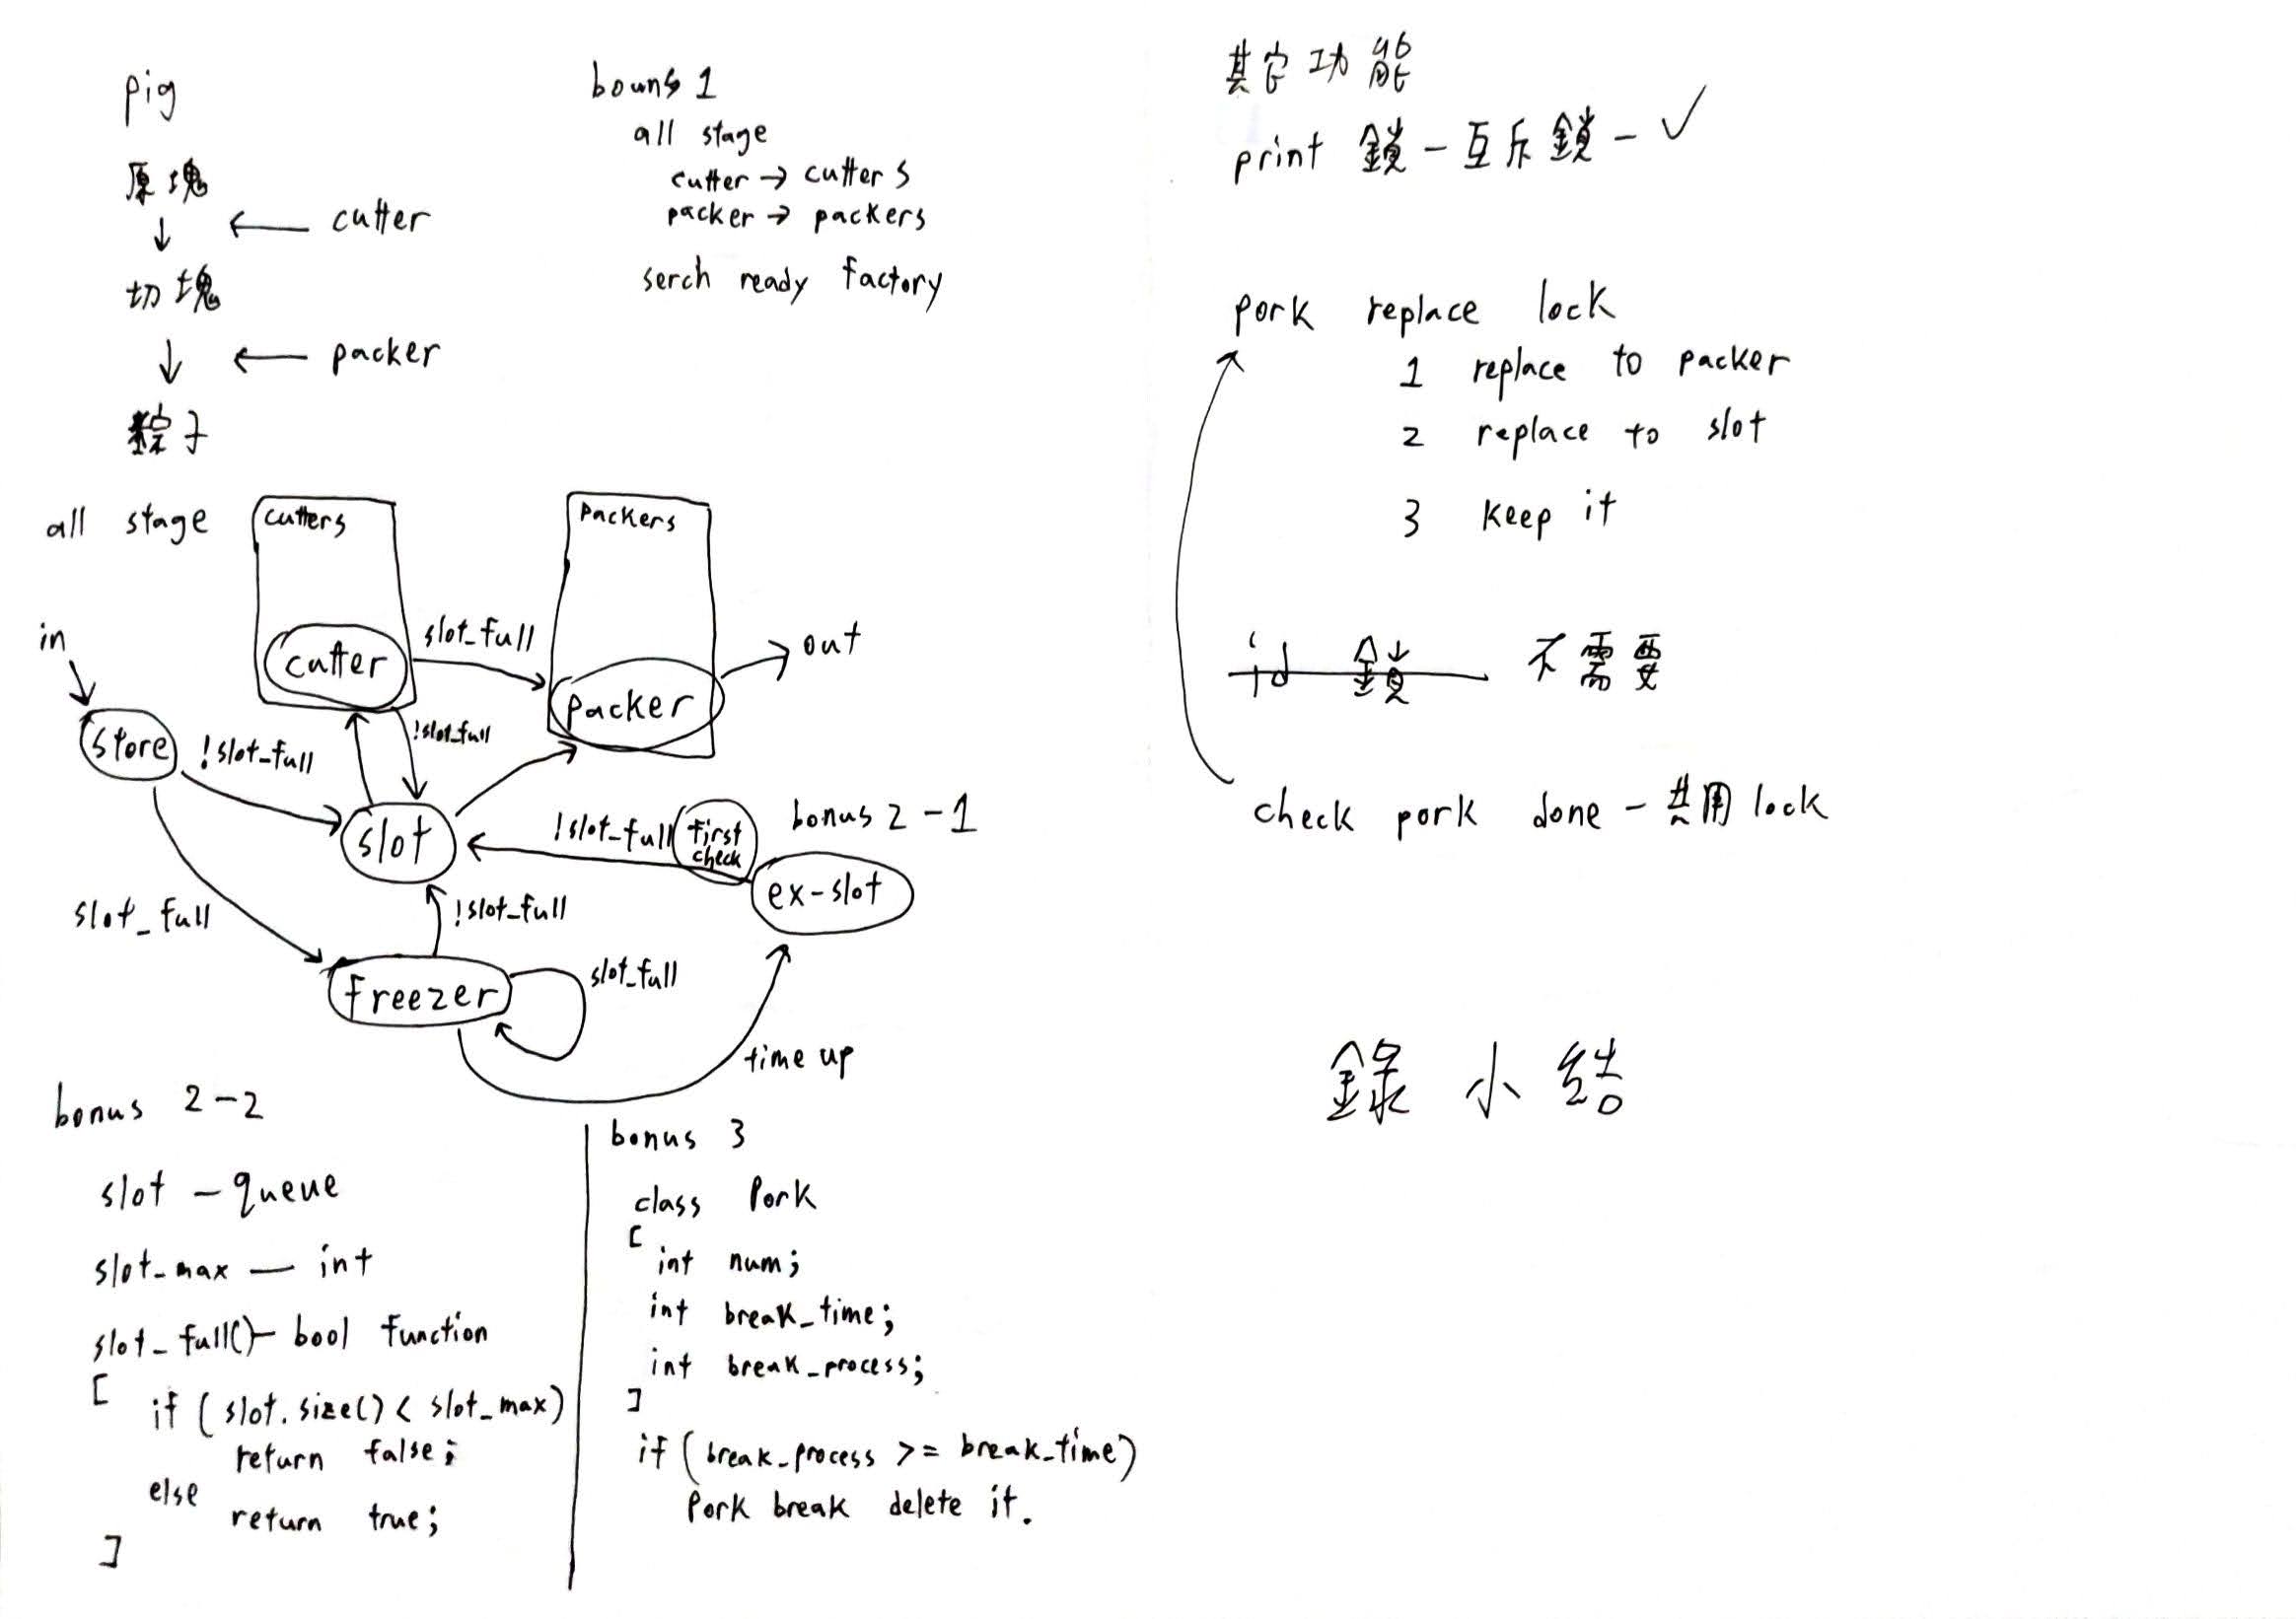 pig
原塊
← cutter
切塊
← packer
粽子
bouns 1
all stage
cutter → cutters
packer → packers
serch ready factory
all stage
cutters
packers
in
cutter
slot_full
packer
out
store
!slot_full
!slot_full
slot
!slot_full
first
check
bonus 2-1
ex-slot
slot_full
!slot_full
freezer
slot_full
time up
bonus 2-2
slot - queue
slot_max — int
slot_full() - bool function
[
if (slot.size() < slot_max)
return false;
else
return true;
]
bonus 3
class Pork
[
int num;
int break_time;
int break_process;
]
if (break_process >= break_time)
Pork break delete it.
其它功能
print 鎖 - 互斥鎖 - ✓
pork replace lock
1 replace to packer
2 replace to slot
3 keep it
id 鎖 不需要
check pork done - 共用 lock
錄 小 結